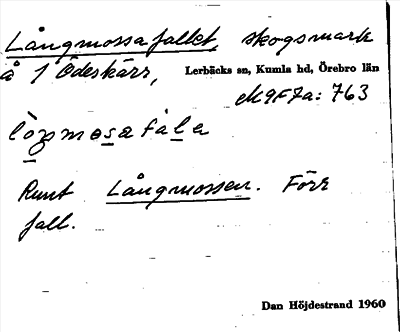 Långmossafallet, skogsmark
å 1 Ödeskärr, Lerbäcks sn, Kumla hd, Örebro län
M9F7a: 763
Runt Långmossen. Förr
fall.
Dan Höjdestrand 1960